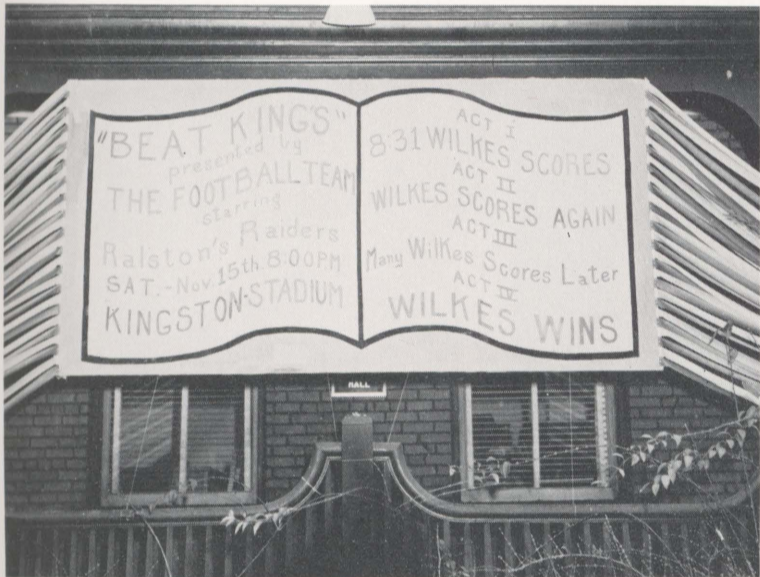 "BEAT KING'S"
presented by
THE FOOTBALL TEAM
starring
Ralston's Raiders
SAT.-Nov. 15th. 8:00PM
KINGSTON-STADIUM
ACT I
8:31 WILKES SCORES
ACT II
WILKES SCORES AGAIN
ACT III
Many Wilkes Scores Later
ACT IV
WILKES WINS
HALL